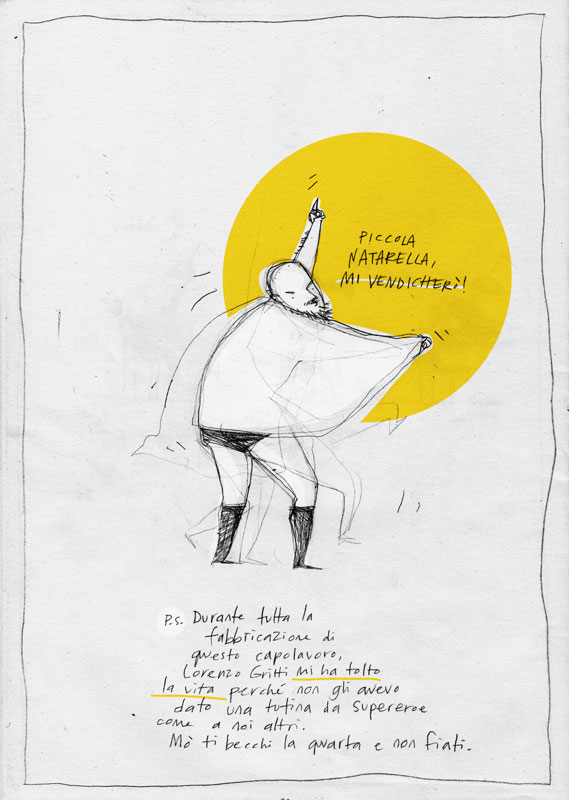 PICCOLA
NATARELLA,
MI VENDICHERÌ!
P.S. Durante tutta la
fabbricazione di
questo capolavoro,
Lorenzo Gritti mi ha tolto
la vita perché non gli avevo
dato una tutina da supereroe
come a noi altri.
Mò ti becchi la quarta e non fiati.